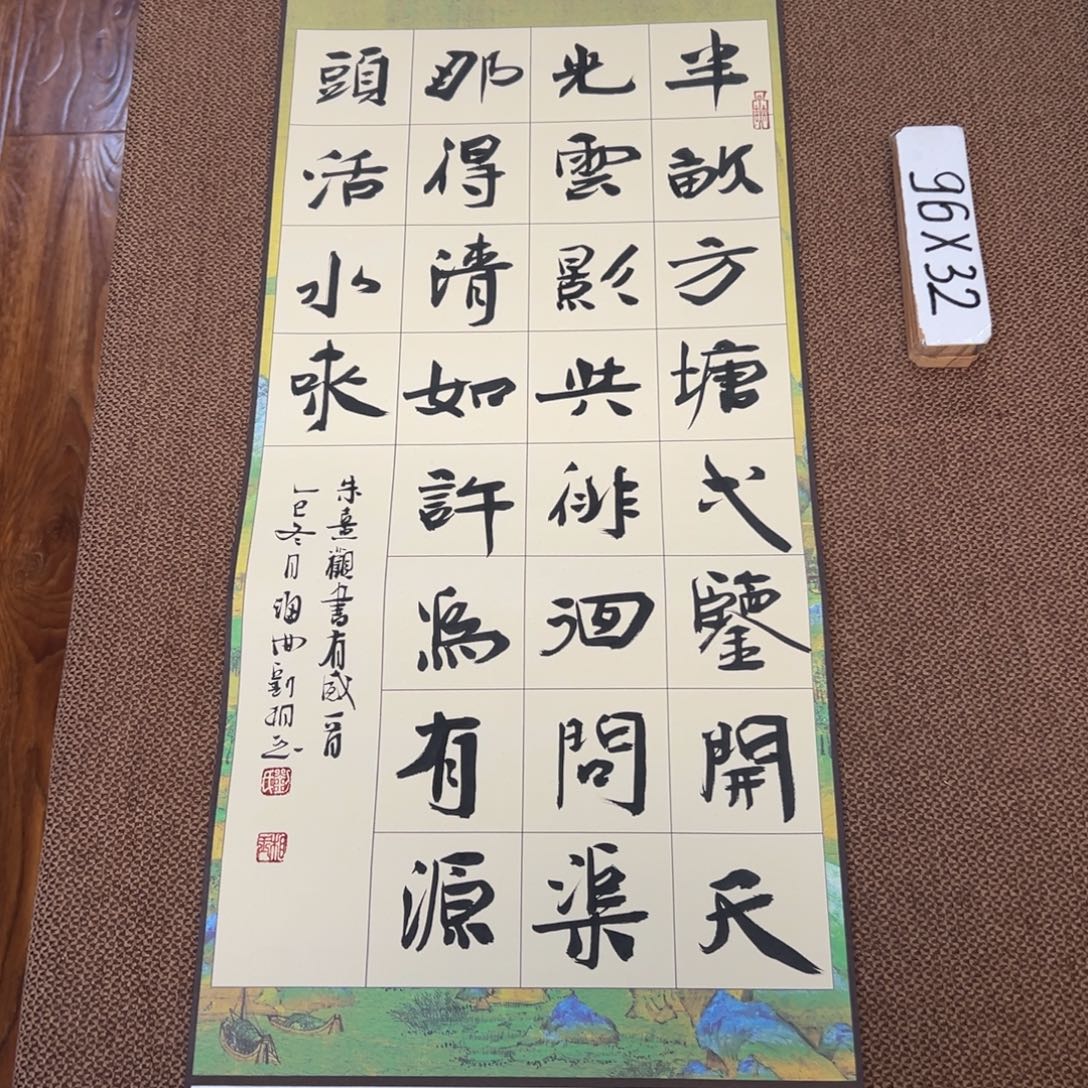 半畝方塘弌鑒開天
光雲影共徘徊問渠
那得清如許爲有源
頭活水來
朱熹觀書有感一首
乙巳冬月海曲劉
96X32